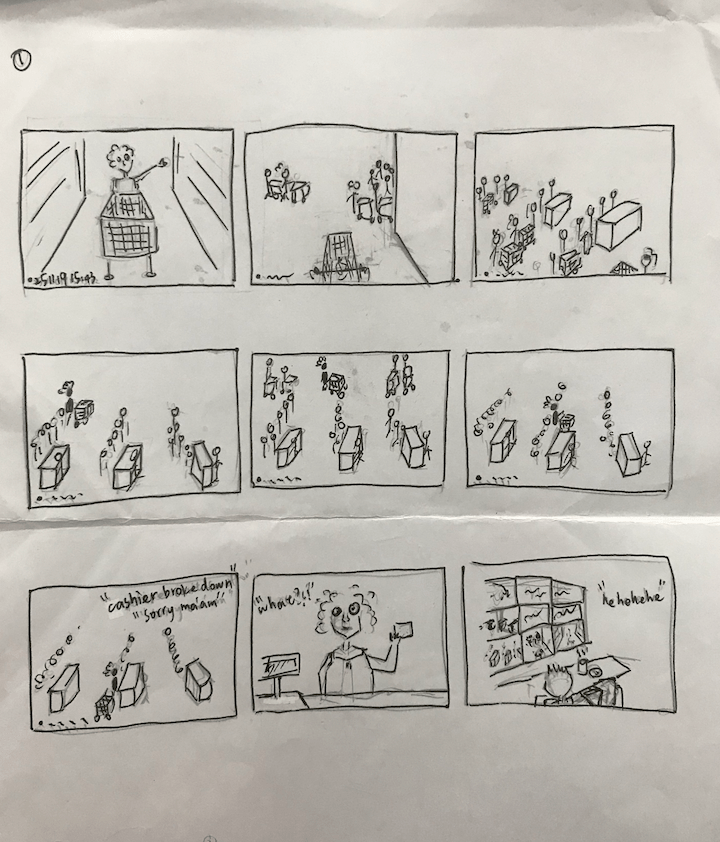 ①
25.11.19 15:43
"cashier broke down"
"sorry ma'am"
"what?!!"
"hehehehe"